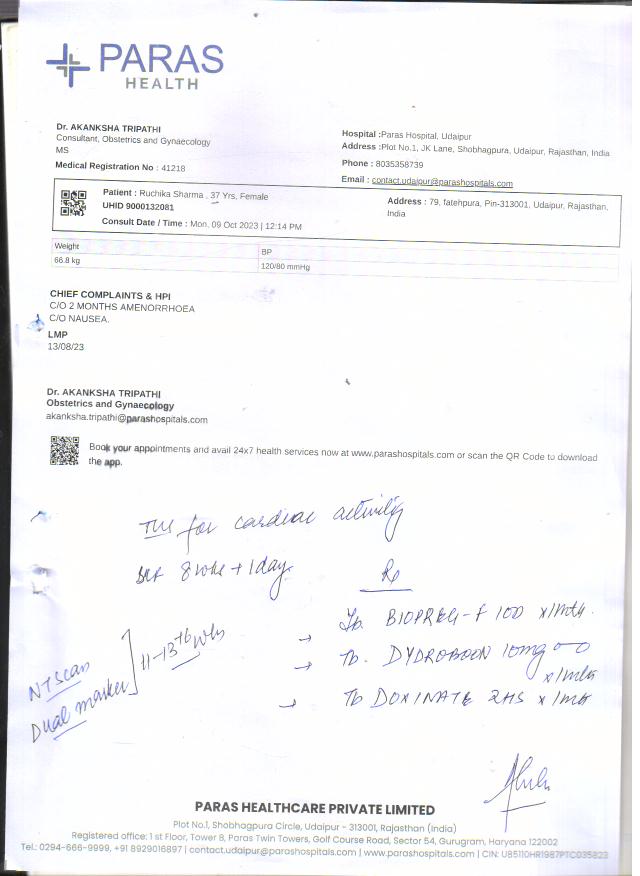 PARAS
HEALTH
Dr. AKANKSHA TRIPATHI
Consultant, Obstetrics and Gynaecology
MS
Medical Registration No : 41218
Hospital :Paras Hospital, Udaipur
Address :Plot No.1, JK Lane, Shobhagpura, Udaipur, Rajasthan, India
Phone : 8035358739
Email : contact.udaipur@parashospitals.com
Patient : Ruchika Sharma , 37 Yrs, Female
UHID 9000132081
Consult Date / Time : Mon, 09 Oct 2023 | 12:14 PM
Address : 79, fatehpura, Pin-313001, Udaipur, Rajasthan,
India
Weight BP
66.8 kg 120/80 mmHg
CHIEF COMPLAINTS & HPI
C/O 2 MONTHS AMENORRHOEA
C/O NAUSEA.
LMP
13/08/23
Dr. AKANKSHA TRIPATHI
Obstetrics and Gynaecology
akanksha.tripathi@parashospitals.com
Book your appointments and avail 24x7 health services now at www.parashospitals.com or scan the QR Code to download
the app.
for cardiac activity
8 wks + 1 day
Rx
Tb. BIOPREG-F 100 x 1mth.
Tb. DYDROBOON 10mg
x 1mth
Tb DOXINATE 2HS x 1mth
NT Scan
Dual marker
11-13+6 wks
PARAS HEALTHCARE PRIVATE LIMITED
Plot No.1, Shobhagpura Circle, Udaipur - 313001, Rajasthan (India)
Registered office: 1 st Floor, Tower 8, Paras Twin Towers, Golf Course Road, Sector 54, Gurugram, Haryana 122002
Tel.: 0294-666-9999, +91 8929016897 | contact.udaipur@parashospitals.com | www.parashospitals.com | CIN: U85110HR1987PTC035823